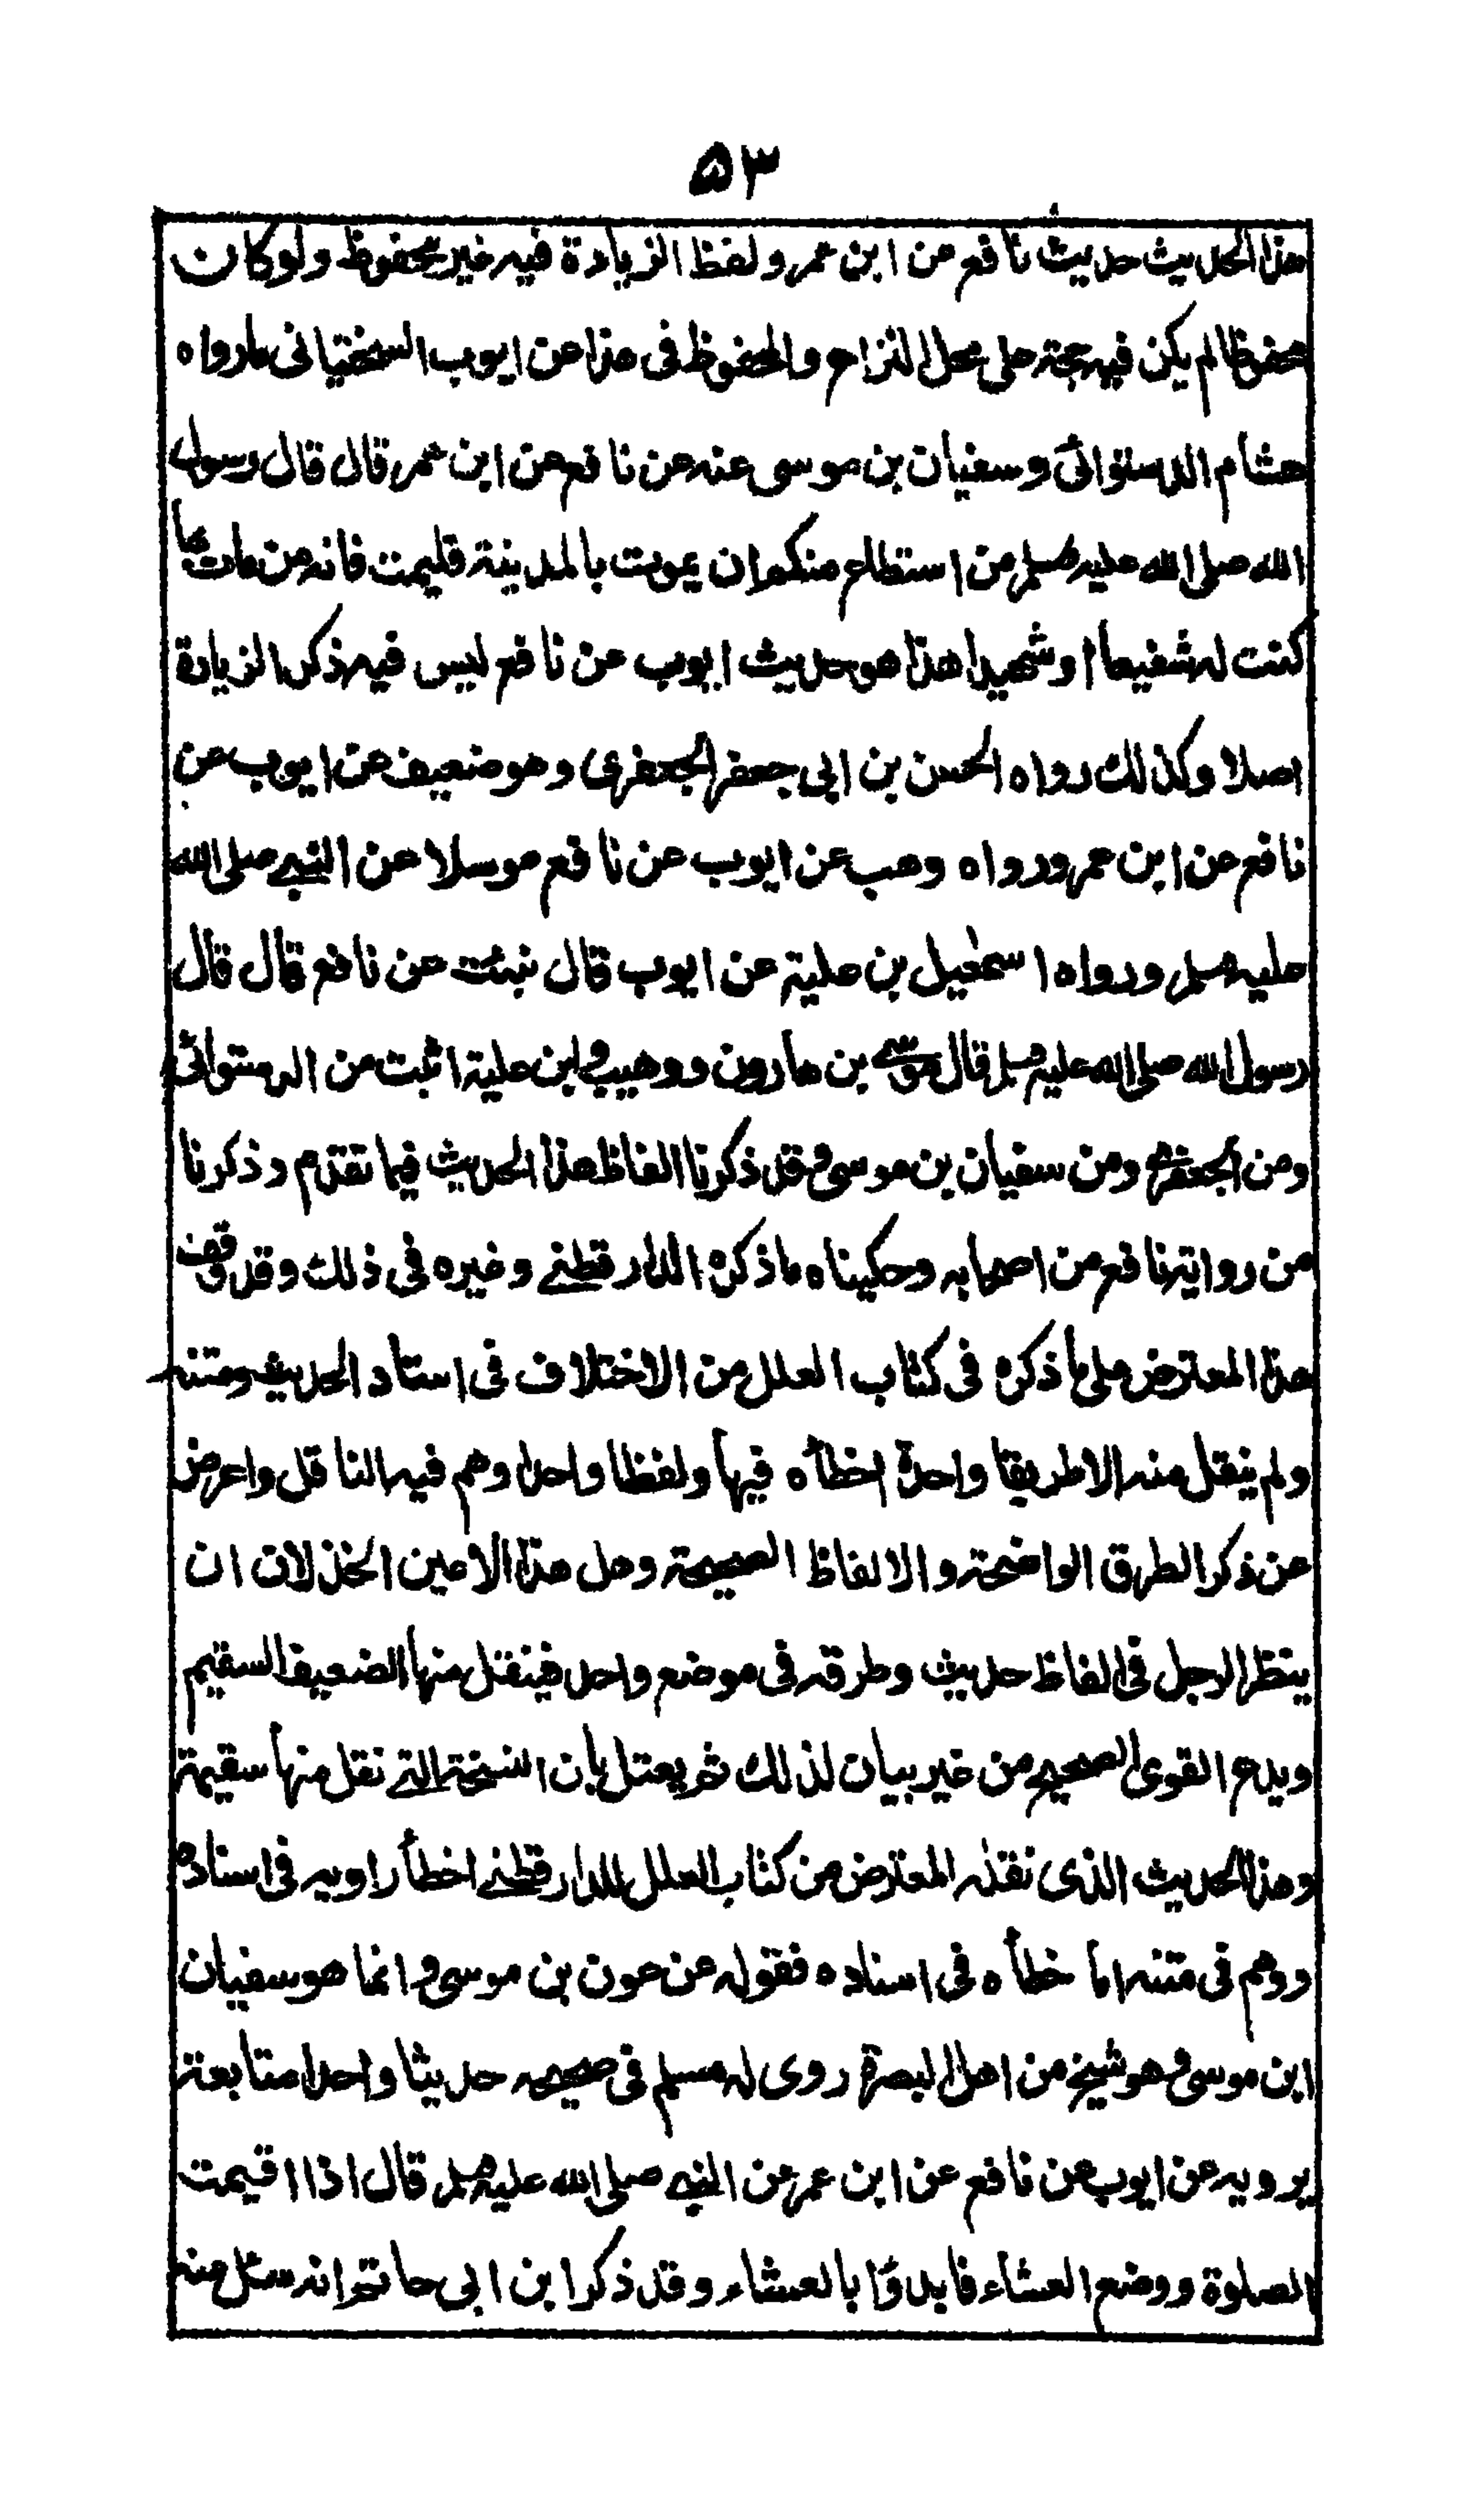 ۵۳
هذا الحديث حديث نافع عن ابن عمر ولفظ الزيادة فيه غير محفوظ ولو كان
محفوظا لم يكن فيه حجة على محل النزاع والمحفوظ فى هذا عن ايوب السختيانى مارواه
هشام الدستوائى وسفيان بن موسى عنه عن نافع عن ابن عمر قال قال رسول
الله صلى الله عليه وسلم من استطاع منكم ان يموت بالمدينة فليمت فانه من مات بها
كنت له شفيعا او شهيدا هذا هو حديث ايوب عن نافع ليس فيه ذكر الزيادة
اصلا وكذلك رواه الحسن بن ابى جعفر الجعفرى وهو ضعيف عن ايوب عن
نافع عن ابن عمر ورواه وهب عن ايوب عن نافع مرسلا عن النبى صلى الله
عليه وسلم ورواه اسمعيل بن علية عن ايوب قال نبئت عن نافع قال قال
رسول الله صلى الله عليه وسلم قال موسى بن هارون ووهيب وابن علية اثبت من الدستوائى
ومن الجعفرى ومن سفيان بن موسى وقد ذكرنا الفاظ هذا الحديث فيما تقدم وذكرنا
من رواية نافع من اصحابه وحكيناه ماذكره الدارقطنى وغيره فى ذلك وقد وقف
هذا المعترض على ما ذكره فى كتاب العلل من الاختلاف فى اسناد الحديث ومتنه
ولم ينقل منه الا طريقا واحدة اخطأه فيها ولفظا واحدا وهم فيه الناقل واعرض
عن ذكر الطرق الواضحة والالفاظ الصحيحة وهل هذا الا من الخذلان ان
ينظر الرجل فى الفاظ حديث وطرقه فى موضع واحد فينقل منها الضعيف السقيم
ويدع القوى الصحيح من غير بيان لذلك ثم يعتل بان النسخة التى نقل منها سقيمة
وهذا الحديث الذى نقله المعترض من كتاب العلل للدارقطنى اخطأ راويه فى اسناده
ووهم فى متنه اما خطأه فى اسناده فقوله عن عون بن موسى وانما هو سفيان
ابن موسى وهو شيخ من اهل البصرة روى له مسلم فى صحيحه حديثا واحدا متابعة
يرويه عن ايوب عن نافع عن ابن عمر عن النبى صلى الله عليه وسلم قال اذا اقيمت
الصلوة ووضع العشاء فابدؤا بالعشاء وقد ذكر ابن ابى حاتم انه سئل عنه